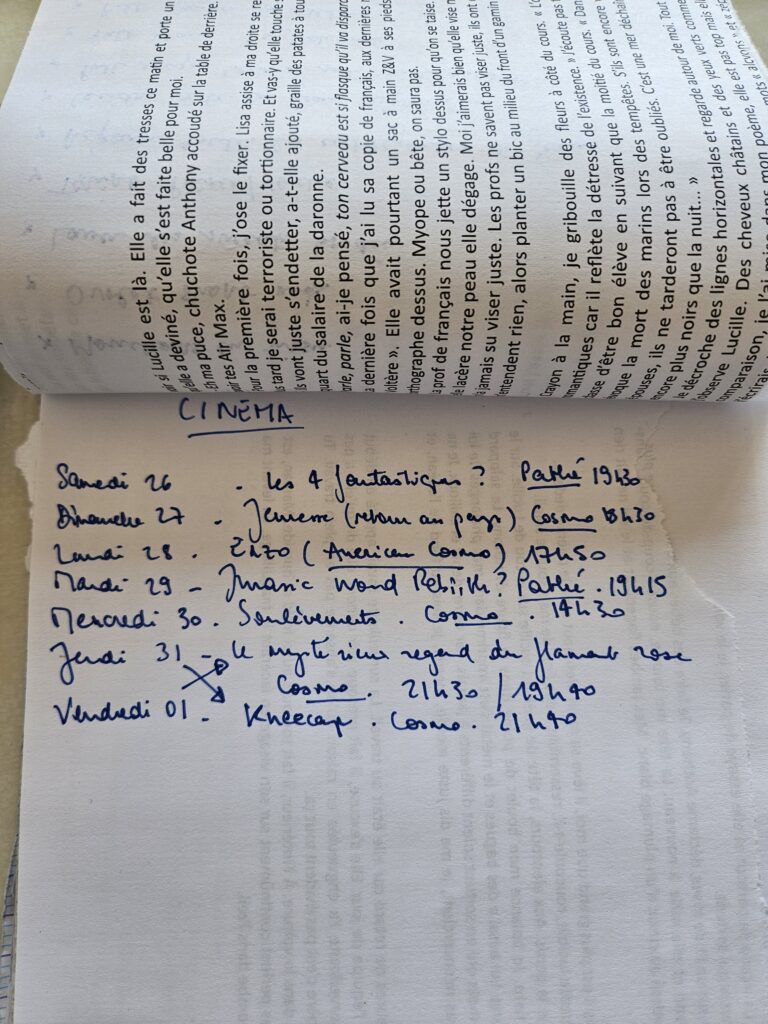 si Lucille est là. Elle a fait des tresses ce matin et porte un
elle a deviné, qu'elle s'est faite belle pour moi.
Eh ma puce, chuchote Anthony accoudé sur la table de derrière.
tes Air Max.
our la première fois, j'ose le fixer. Lisa assise à ma droite se re
s tard je serai terroriste ou tortionnaire. Et vas-y qu'elle touche s
ls vont juste s'endetter, a-t-elle ajouté, graille des patates à tou
quart du salaire de la daronne.
parle, ai-je pensé, ton cerveau est si flasque qu'il va disparo
a dernière fois que j'ai lu sa copie de français, aux dernières
oltère ». Elle avait pourtant un sac à main Z&V à ses pieds
orthographe dessus. Myope ou bête, on saura pas.
a prof de français nous jette un stylo dessus pour qu'on se taise.
lacère notre peau elle dégage. Moi j'aimerais bien qu'elle vise
a jamais su viser juste. Les profs ne savent pas viser juste, ils ont
entendent rien, alors planter un bic au milieu du front d'un gamin
Crayon à la main, je gribouille des fleurs à côté du cours. « L'o
mantiques car il reflète la détresse de l'existence. » J'écoute pas
asse d'être bon élève en suivant que la moitié du cours. « Dan
oque la mort des marins lors des tempêtes. S'ils sont encore
ouses, ils ne tarderont pas à être oubliés. C'est une mer déchaî
ncore plus noirs que la nuit... »
le décroche des lignes horizontales et regarde autour de moi. Tout
observe Lucille. Des cheveux châtains et des yeux verts comme
omparaison, je l'ai mise dans mon poème, elle est pas top mais ell
mots « alcyons » et
CINÉMA
Samedi 26 . Les 4 fantastiques ? Pathé 19h30
Dimanche 27 . Jeunesse (retour au pays) Cosmo 18h30
Lundi 28 . Enzo (American Cosmo) 17h50
Mardi 29 - Jurasic World Rebirth ? Pathé . 19h15
Mercredi 30 . Soulèvements . Cosmo . 14h30
Jeudi 31 - Le mystérieux regard du flamant rose
Cosmo . 21h30 / 19h40
Vendredi 01 . Kneecap . Cosmo . 21h40